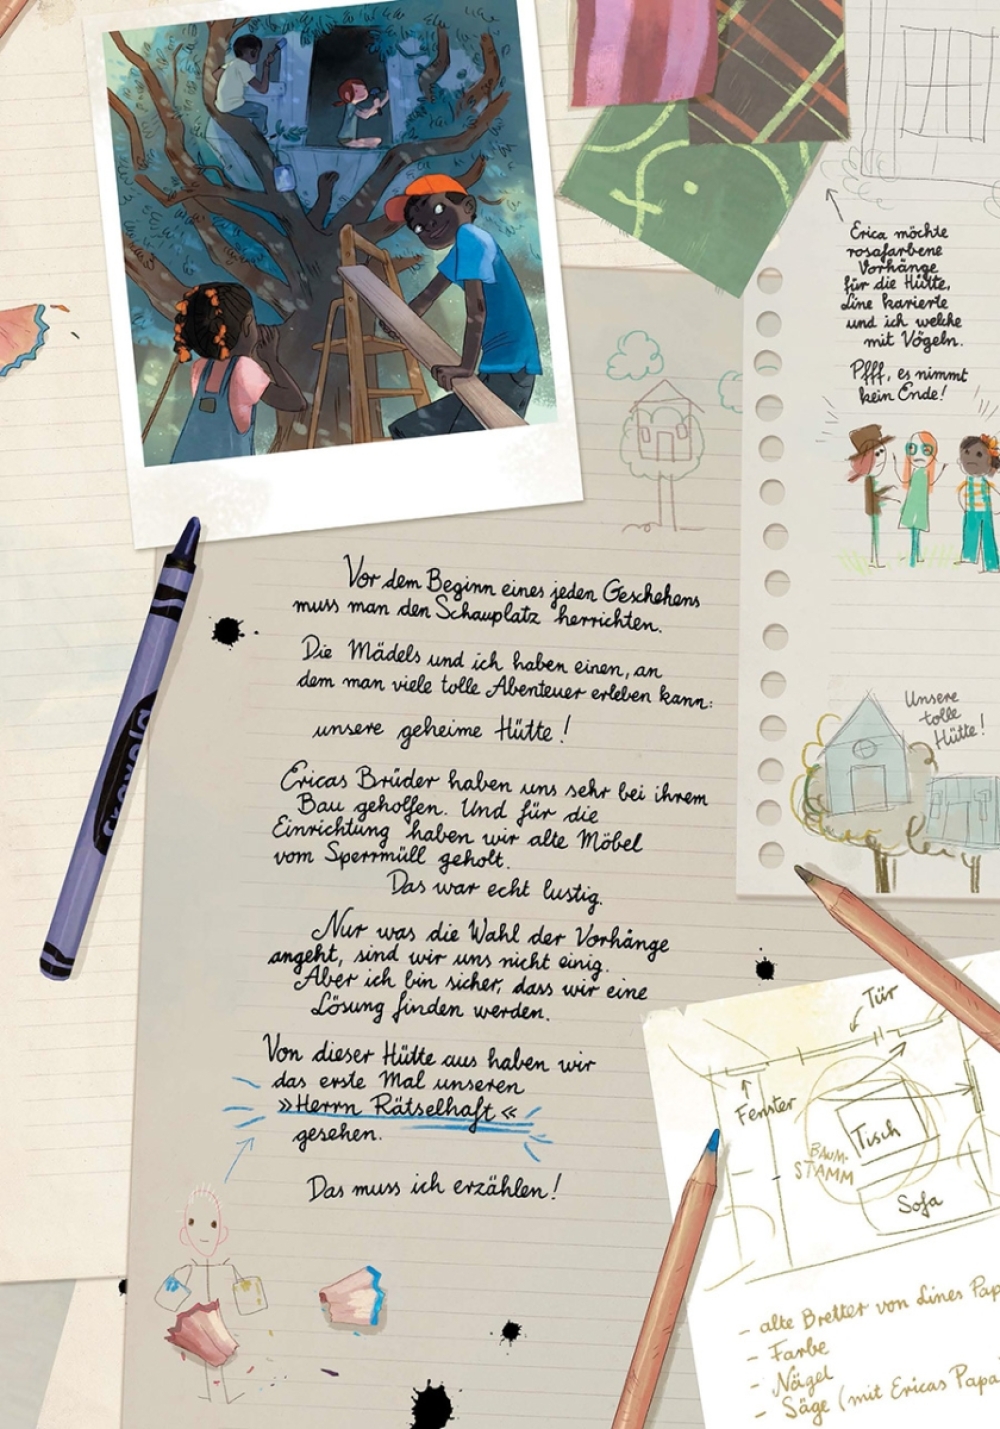 Erica möchte
rosafarbene
Vorhänge
für die Hütte,
Line karierte
und ich welche
mit Vögeln.
Pfff, es nimmt
kein Ende!
Vor dem Beginn eines jeden Geschehens
muss man den Schauplatz herrichten.
Die Mädels und ich haben einen, an
dem man viele tolle Abenteuer erleben kann:
unsere geheime Hütte!
Ericas Brüder haben uns sehr bei ihrem
Bau geholfen. Und für die
Einrichtung haben wir alte Möbel
vom Sperrmüll geholt.
Das war echt lustig.
Nur was die Wahl der Vorhänge
angeht, sind wir uns nicht einig.
Aber ich bin sicher, dass wir eine
Lösung finden werden.
Von dieser Hütte aus haben wir
das erste Mal unseren
»Herrn Rätselhaft«
gesehen.
Das muss ich erzählen!
crayola
Unsere
tolle
Hütte!
Tür
Fenster
Tisch
BAUM-
STAMM
Sofa
- alte Bretter von Lines Pap
- Farbe
- Nägel
- Säge (mit Ericas Papa